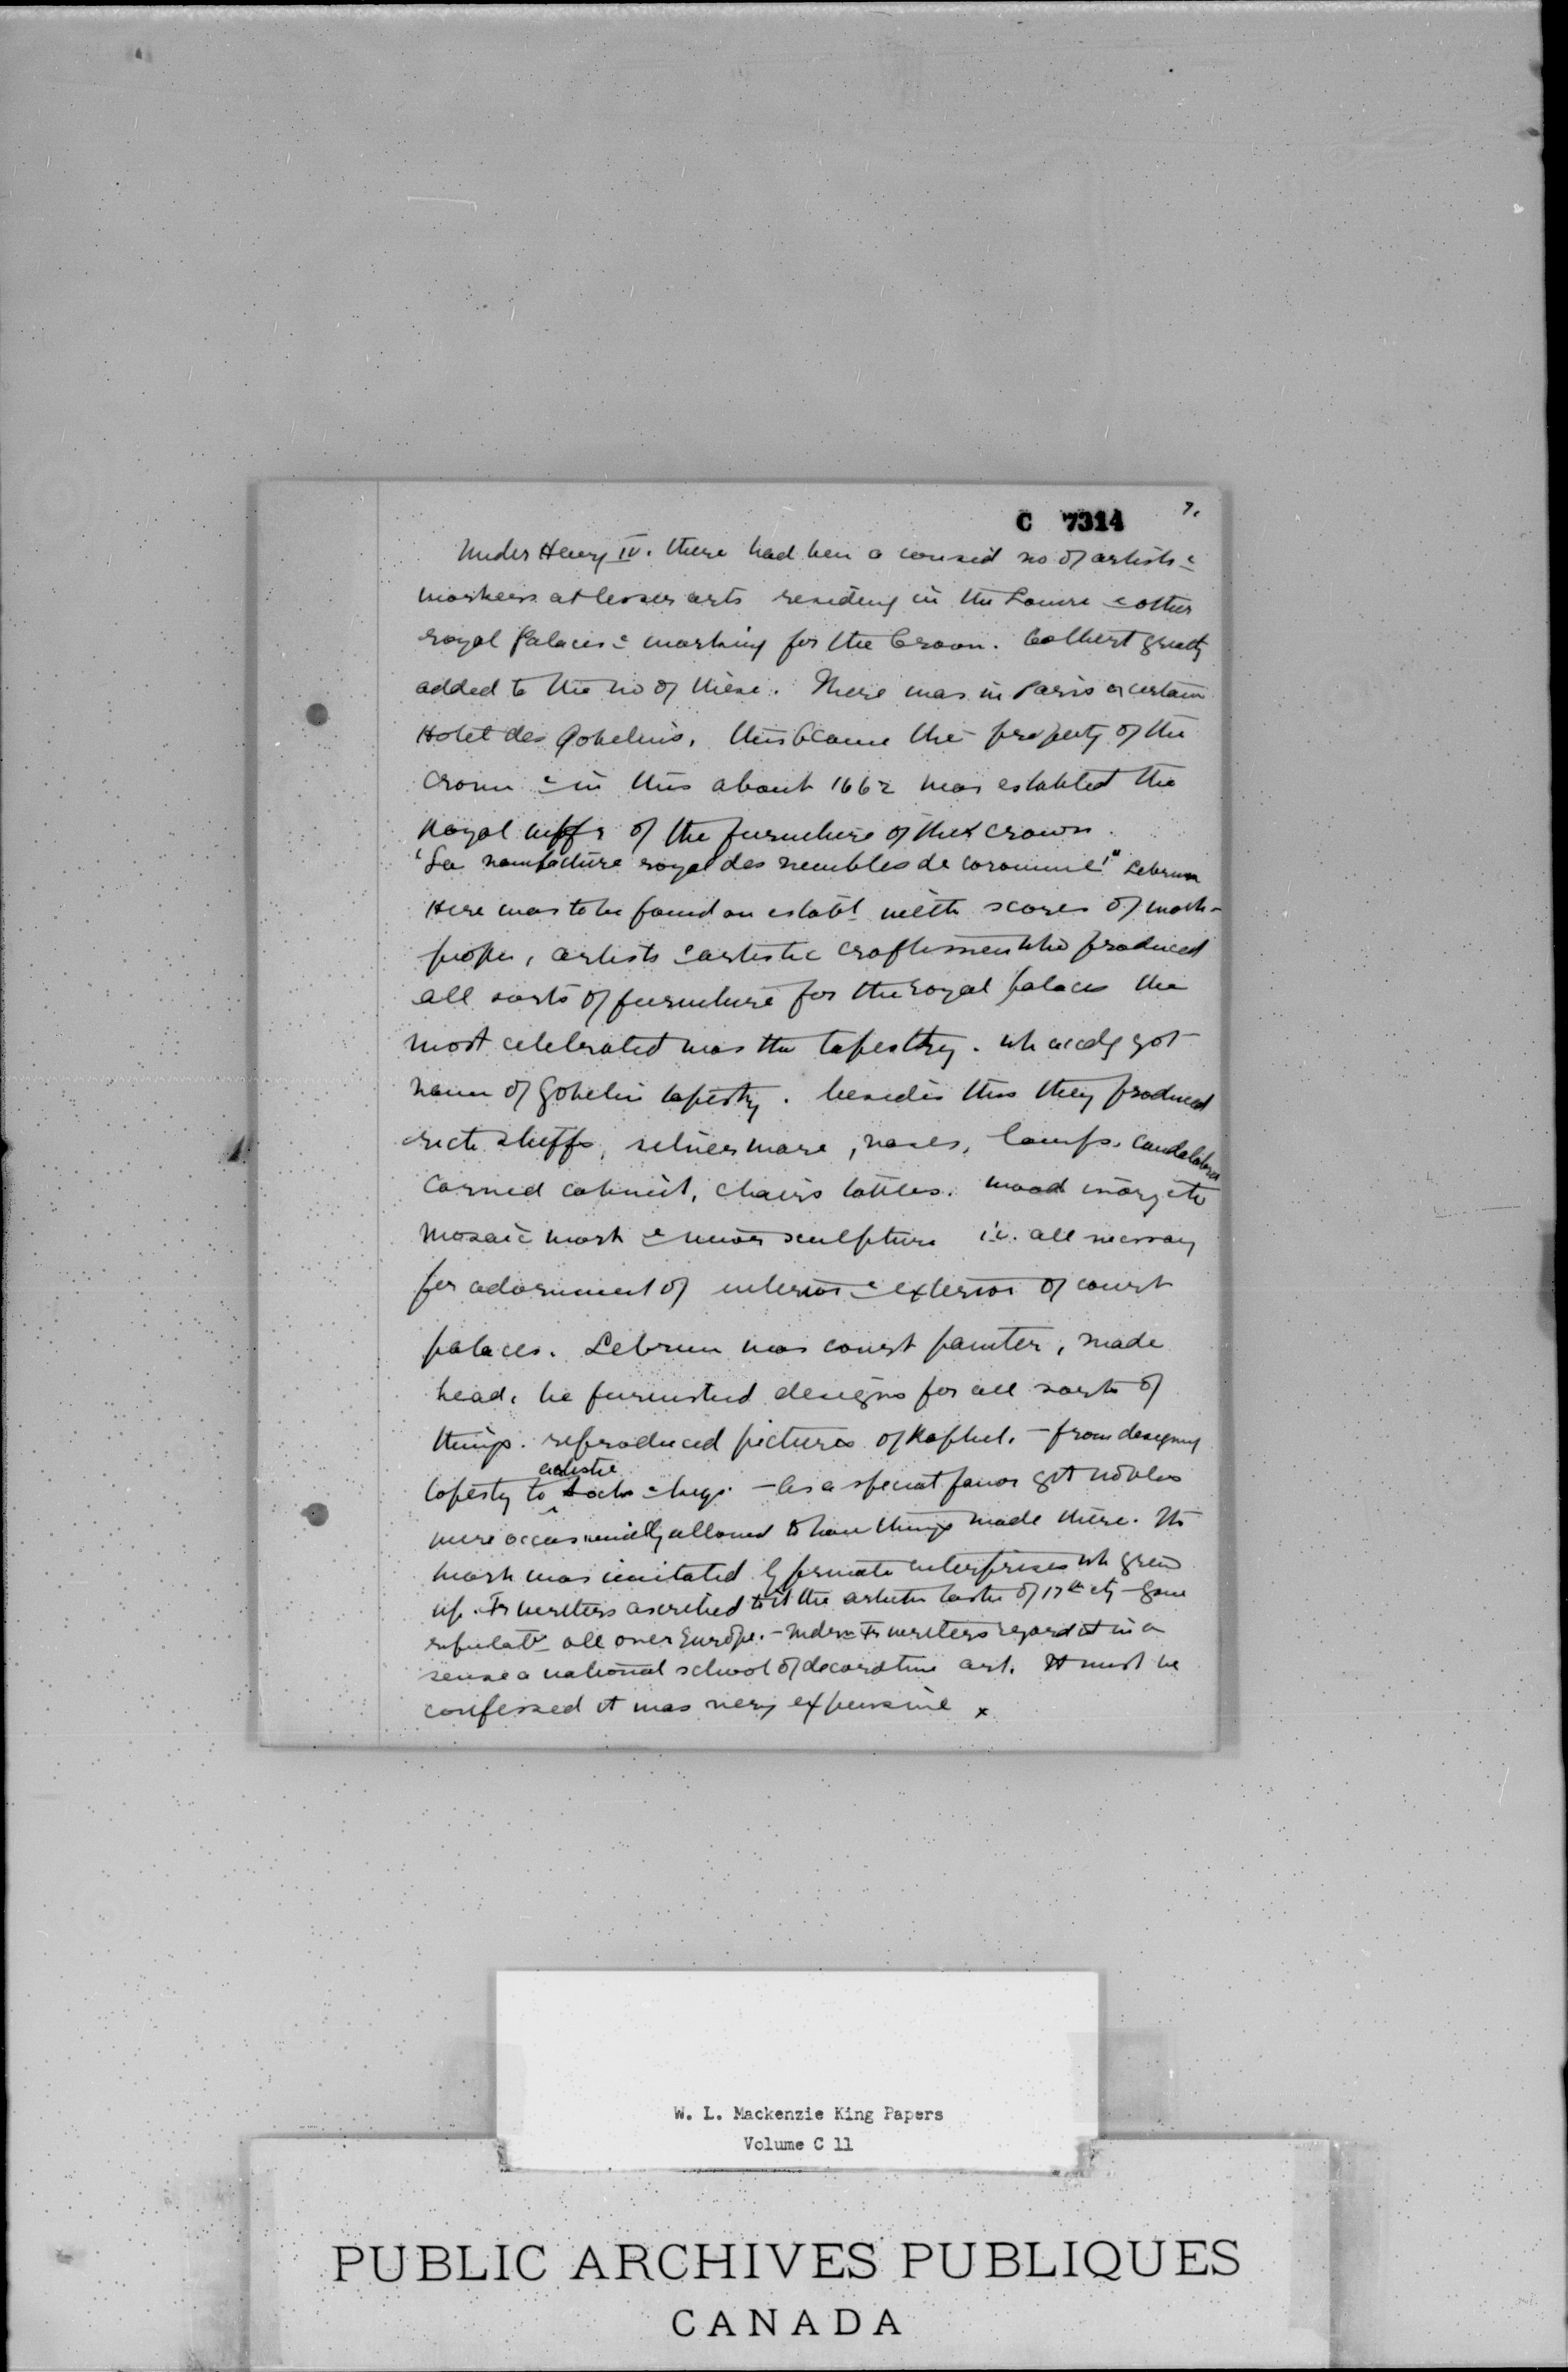 7.
C 7314
Under Henry IV. there had been a consid no of artists &
workers at lesser arts residing in the Louvre & other
royal palaces & working for the Crown. Colbert greatly
added to the no of these. There was in Paris a certain
Hotel des Gobelins, this became the property of the
crown & in this about 1662 was establted the
Royal mffr of the furniture of the crown.
"La manufacture royal des meubles de couronne!" Lebrun
Here was to be found an establ. with scores of work-
people, artists & artistic craftsmen who produced
all sorts of furniture for the royal palaces the
most celebrated was the tapestry. wh accdg got
name of Gobelin tapestry. besides this they produced
rich stuffs, silverware, vases, lamps. candelabra
carved cabinet, chairs tables. wood ivory etc
mosaic work & minor sculpture i.e. all necessary
for adornment of interior & exterior of court
palaces. Lebrun was court painter, made
head. he furnished designs for all sorts of
things. reproduced pictures of Raphael. - from designing
artistic
tapestry to locks & keys. - As a special favor gt nobles
were occasionally allowed to have things made there. Its
work was imitated by private enterprises wh grew
up. Fr writers ascribed to it the artistic taste of 17th cty - gave
reputatn all over Europe. - Modern Fr writers regard it in a
sense a national school of decorative art. It must be
confessed it was very expensive x
W. L. Mackenzie King Papers
Volume C 11
PUBLIC ARCHIVES PUBLIQUES
CANADA